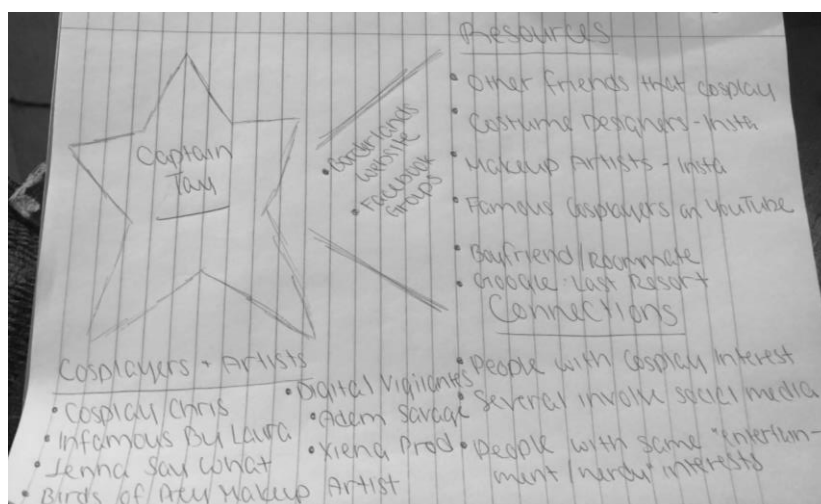 Captain
Tay
• Borderlands
Website
• Facebook
Groups
Resources
• Other friends that cosplay
• Costume Designers - Insta
• Makeup Artists - Insta
• Famous Cosplayers on YouTube
• Boyfriend/Roommate
• Google-Last Resort
Connections
• People with Cosplay Interest
• Several involve social media
• People with same "entertain-
ment/nerdy" interests
Cosplayers + Artists
• Cosplay Chris
• Infamous By Laura
• Jenna Say What
• Birds of Makeup Artist
• Digital Vigilantes
• Adam Savage
• Xiena Prod